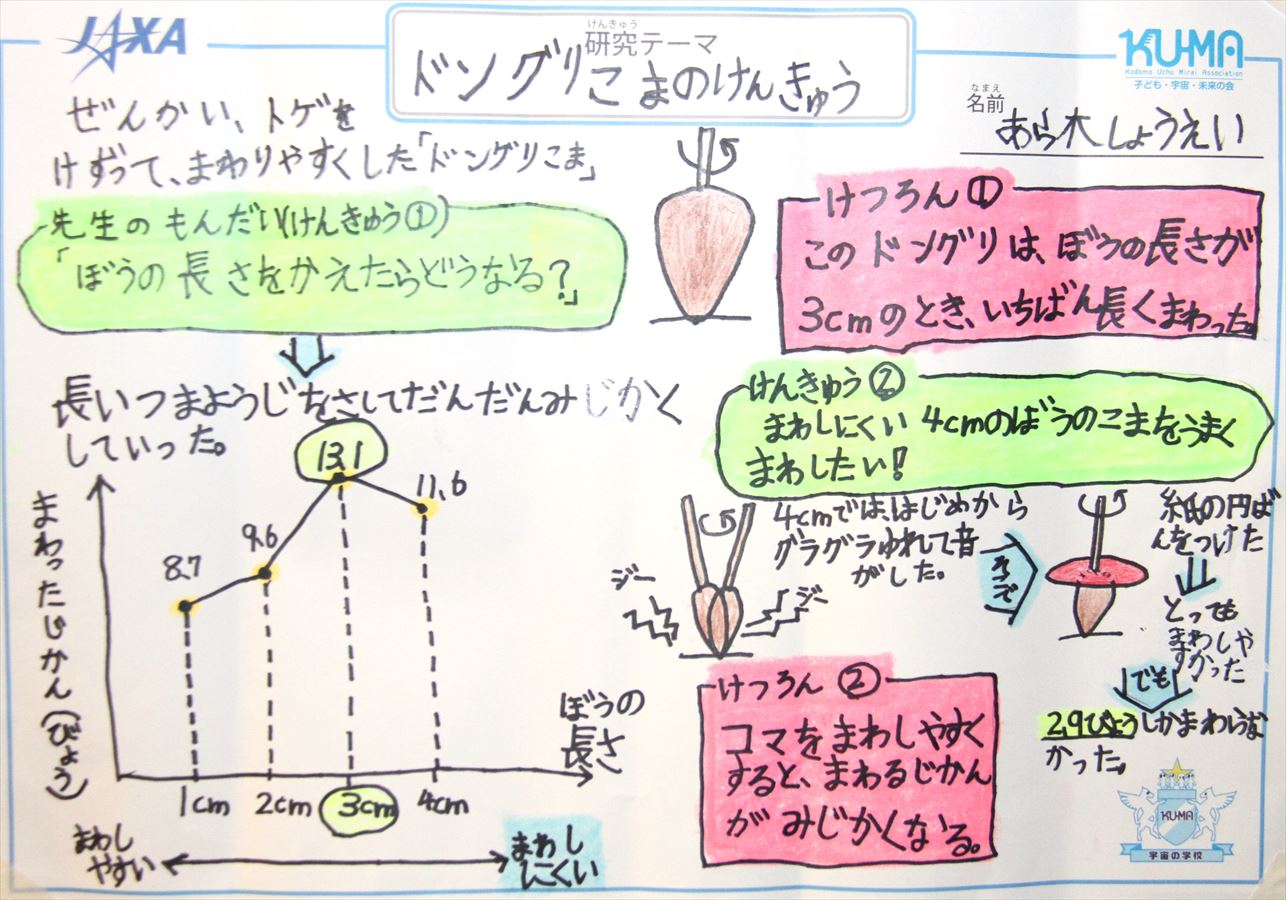 JAXA
けんきゅう
研究テーマ
ドングリこまのけんきゅう
KU-MA
Kodomo Uchu Mirai Association
子ども・宇宙・未来の会
なまえ
名前
あら木しょうえい
ぜんかい、トゲを
けずって、まわりやすくした「ドングリこま」
先生のもんだい(けんきゅう①)
「ぼうの長さをかえたらどうなる?」
長いつまようじをさしてだんだんみじかく
していった。
まわったじかん(びょう)
8.7
9.6
13.1
11.6
1cm
2cm
3cm
4cm
ぼうの
長さ
まわし
やすい
まわし
にくい
けつろん①
このドングリは、ぼうの長さが
3cmのとき、いちばん長くまわった。
けんきゅう②
まわしにくい4cmのぼうのこまをうまく
まわしたい!
4cmでは、はじめから
グラグラゆれて音
がした。
ジー
ジー
それで
紙の円ば
んをつけた
とっても
まわしや
すかった
でも
2.9びょうしかまわらな
かった。
けつろん②
コマをまわしやすく
すると、まわるじかん
がみじかくなる。
KU-MA
宇宙の学校